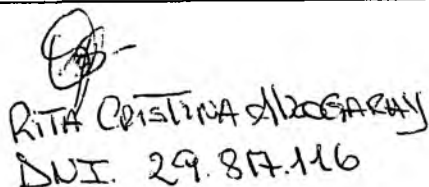 RITA CRISTINA AlzOGARAY
DNI. 29.817.116